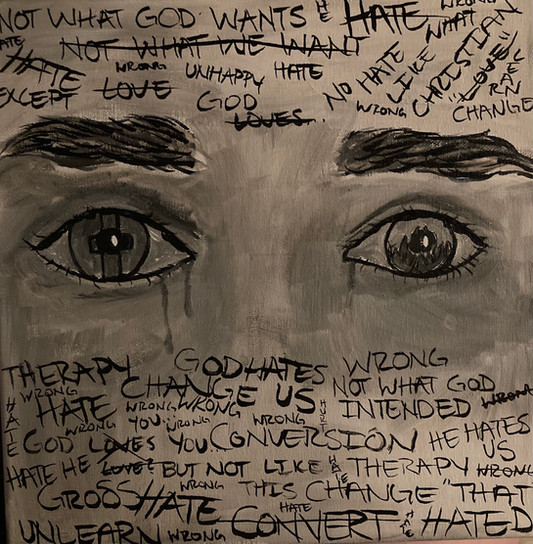 NOT WHAT GOD WANTS HE HATE WRONG
HATE NOT WHAT WE WANT WHAT
HATE WRONG UNHAPPY HATE NO HATE LIKE CHRISTIAN "LOVE"
EXCEPT LOVE GOD WRONG CHANGE
LOVES.
THERAPY GOD HATES WRONG
WRONG CHANGE US NOT WHAT GOD
HATE HATE WRONG WRONG INTENDED WRONG
WRONG YOU WRONG WRONG
GOD LOVES YOU CONVERSION HE HATES
US
HATE HE LOVE? BUT NOT LIKE THERAPY WRONG
GROSS HATE WRONG THIS CHANGE "THAT
HATE
UNLEARN WRONG CONVERT HATED